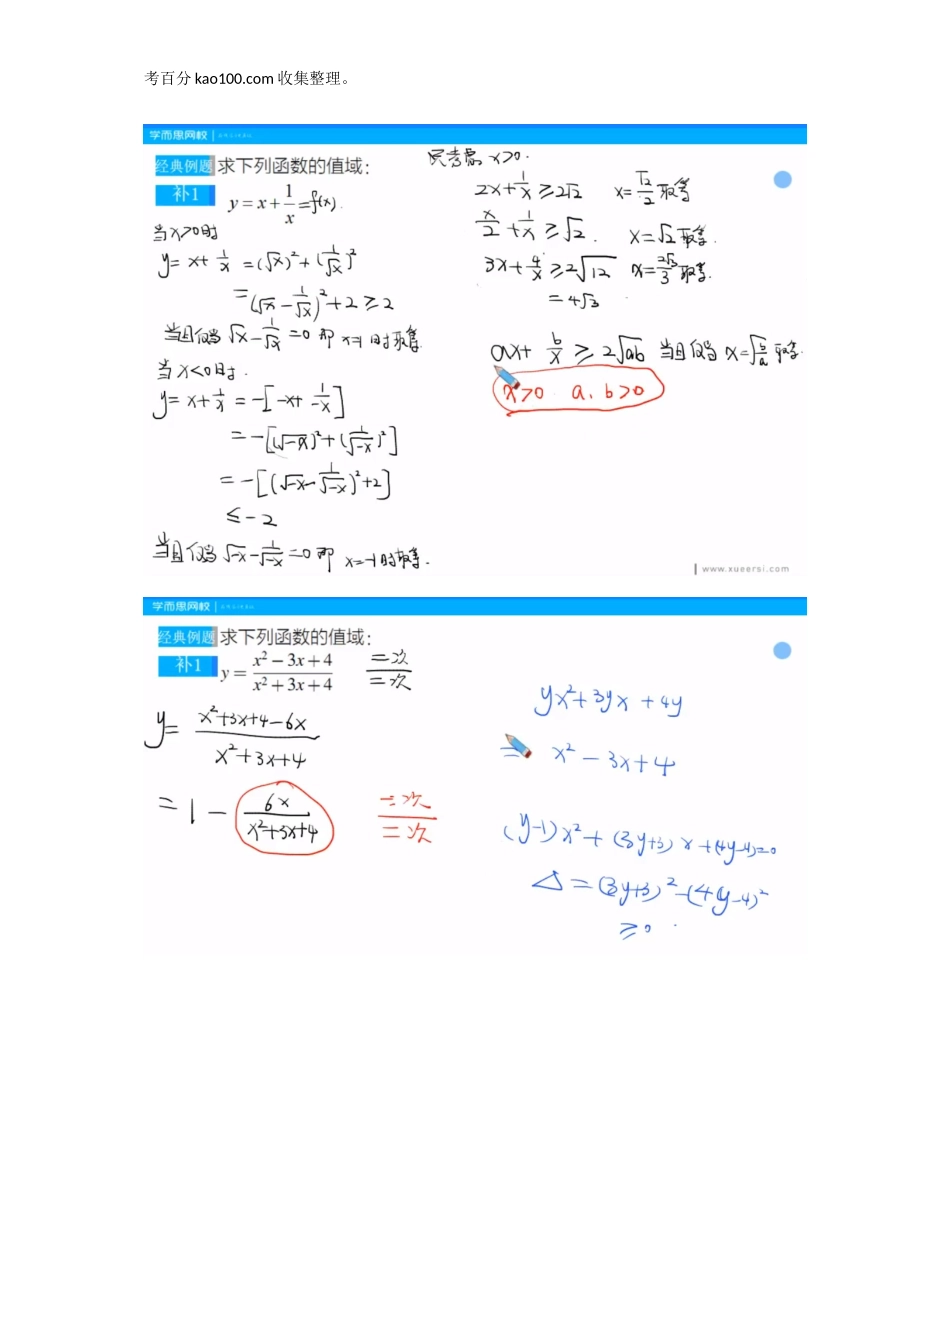 考百分 kao100.com 收集整理。
学而思网校
经典例题 求下列函数的值域：
补1 y = x + 1/x = f(x)
当x>0时
y = x + 1/x = (√x)² + (1/√x)²
= (√x - 1/√x)² + 2 ≥ 2
当且仅当 √x - 1/√x = 0 即 x=1时取等
当 x<0时.
y = x + 1/x = -[-x + 1/-x]
= -[(√-x)² + (1/√-x)²]
= -[(√-x - 1/√-x)² + 2]
≤ -2
当且仅当 √-x - 1/√-x = 0 即 x=-1时取等.
只考虑 x>0.
2x + 1/x ≥ 2√2 x = √2/2 取等
x/2 + 1/x ≥ √2. x = √2 取等.
3x + 4/x ≥ 2√12 x = 2√3/3 取等.
= 4√3
ax + b/x ≥ 2√ab 当且仅当 x = √b/a 取等.
x>0 a、b>0
www.xueersi.com
学而思网校
经典例题 求下列函数的值域：
补1 y = x² - 3x + 4 / x² + 3x + 4 二次/二次
y = x² + 3x + 4 - 6x / x² + 3x + 4
= 1 - 6x / x² + 3x + 4 一次/二次
yx² + 3yx + 4y
= x² - 3x + 4
(y-1)x² + (3y+3)x + (4y-4) = 0
Δ = (3y+3)² - (4y-4)²
≥ 0 .